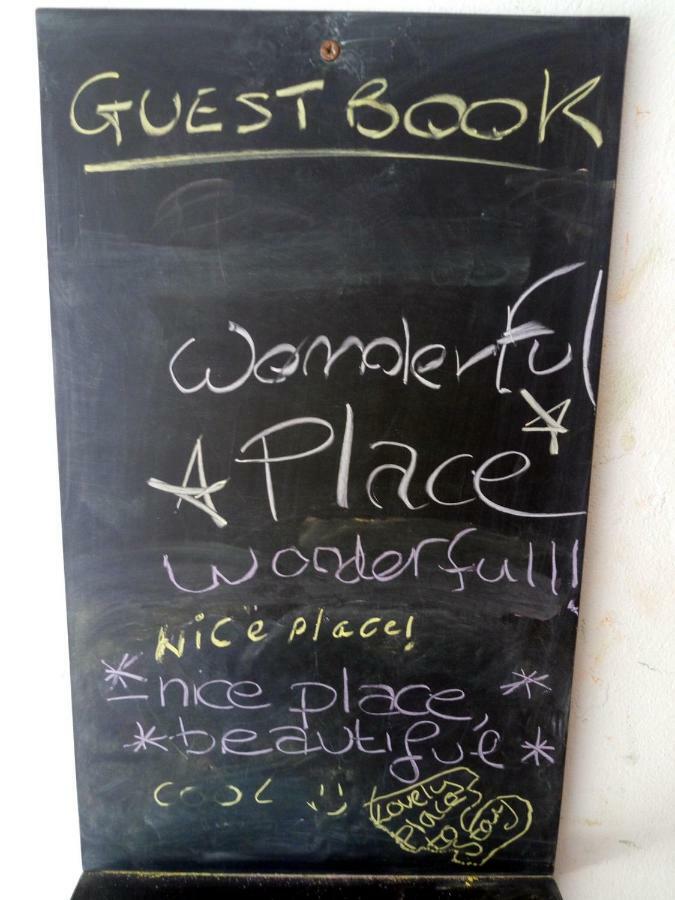 GUEST BOOK
Wonderful
Place
Wonderful!!
NiCë place!
nice place,
beautiful
COOL :)
Lovely
Place
to Stay